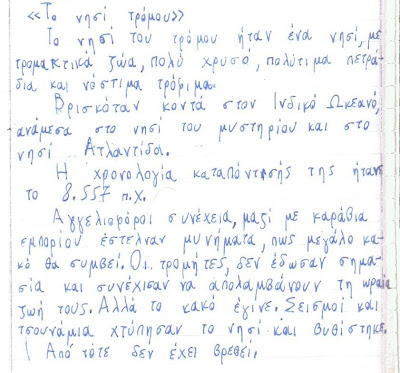 <<Το νησί τρόμου>>
Το νησί του τρόμου ήταν ένα νησί, με
τρομακτικά ζώα, πολύ χρυσό, πολύτιμα πετρά-
δια και νόστιμα τρόφιμα.
Βρισκόταν κοντά στον Ινδικό Ωκεανό,
ανάμεσα στο νησί του μυστηρίου και στο
νησί Ατλαντίδα.
Η χρονολογία καταπόντισής της ήταν
το 8.557 π.χ.
Αγγελιοφόροι συνέχεια, μαζί με καράβια
εμπορίου έστελναν μυνήματα, πως μεγάλο κα-
κό θα συμβεί. Οι τρομήτες, δεν έδωσαν σημα-
σία και συνέχισαν να απολαμβάνουν τη ωραία
ζωή τους. Αλλά το κακό έγινε. Σεισμοί και
τσουνάμια χτύπησαν το νησί και βυθίστηκε.
Από τότε δεν έχει βρεθεί.